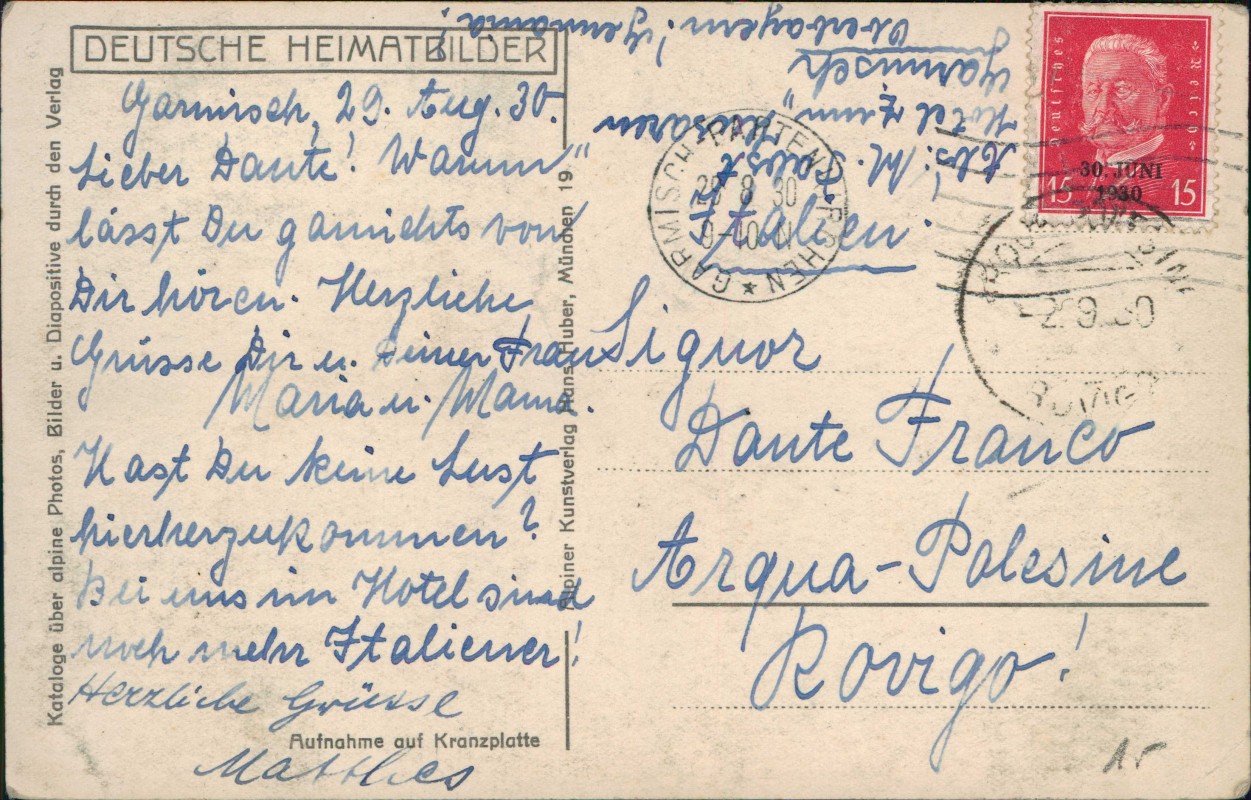 DEUTSCHE HEIMATBILDER
Garmisch, 29. Aug. 30.
Lieber Dante! Warum
lässt Du garnichts von
Dir hören. Herzliche
Grüsse Dir u. Deiner Frau
Maria u. Mama.
Hast Du keine Lust
hierherzukommen?
Bei uns im Hotel sind
noch mehr Italiener!
Herzliche Grüsse
Matthes
Aufnahme auf Kranzplatte
Kataloge über alpine Photos, Bilder u. Diapositive durch den Verlag
Alpiner Kunstverlag Hans Huber, München 19
Abs: M.
Hotel zum "Husaren"
Garmisch
Oberbayern! Germania!
Deutsches Reich
15 15
30. JUNI
1930
GARMISCH-PARTENKIRCHEN
8 30
9-10 N
2.9.30
Italien.
Signor
Dante Franco
Arqua-Polesine
Rovigo!
15